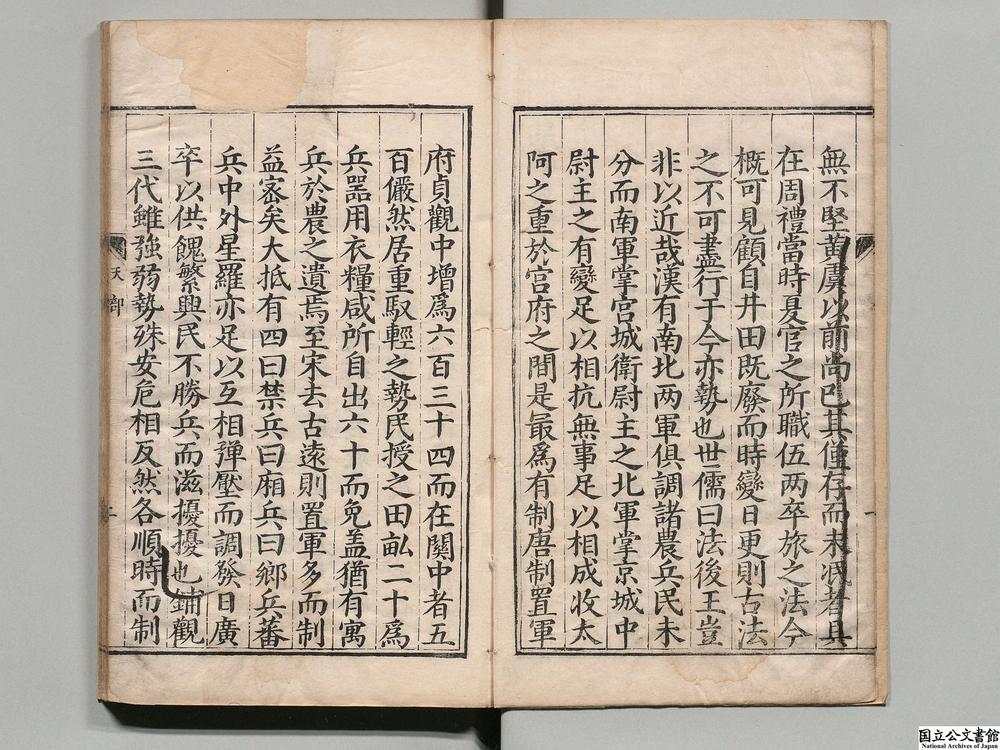 無不堅黄虞以前尚已其僅存而未泯者具
在周禮當時夏官之所職伍两卒旅之法今
概可見顧自井田既廢而時變日更則古法
之不可盡行于今亦勢也世儒曰法後王豈
非以近哉漢有南北两軍俱調諸農兵民未
分而南軍掌宮城衛尉主之北軍掌京城中
尉主之有變足以相抗無事足以相成收太
阿之重於宮府之間是最為有制唐制置軍
府貞觀中增爲六百三十四而在關中者五
百儼然居重馭輕之勢民授之田畝二十爲
兵器用衣糧咸所自出六十而免盖猶有寓
兵於農之遺焉至宋去古遠則置軍多而制
益密矣大抵有四曰禁兵曰廂兵曰鄉兵蕃
兵中外星羅亦足以互相彈壓而調發日廣
卒以供餽繁興民不勝兵而滋擾擾也鋪觀
三代雖強弱勢殊安危相反然各順時而制
天部
一
二
国立公文書館
National Archives of Japan